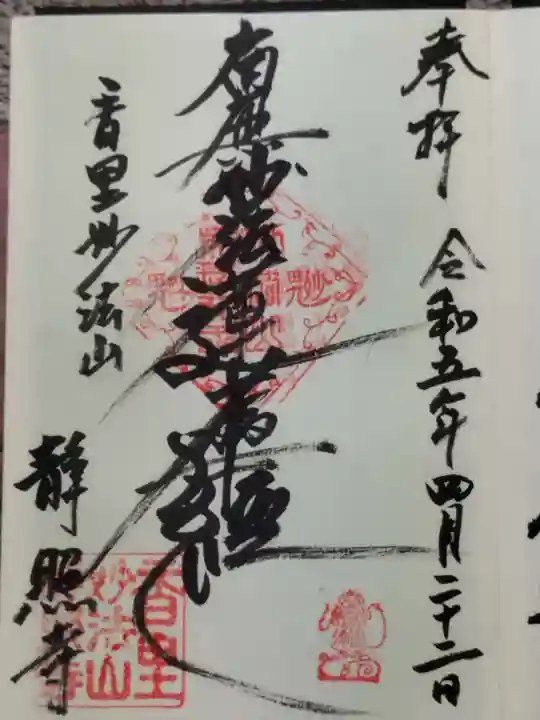 奉拝 令和五年四月二十二日
南無妙法蓮華経
香里妙法山
静照寺
香里
妙法山